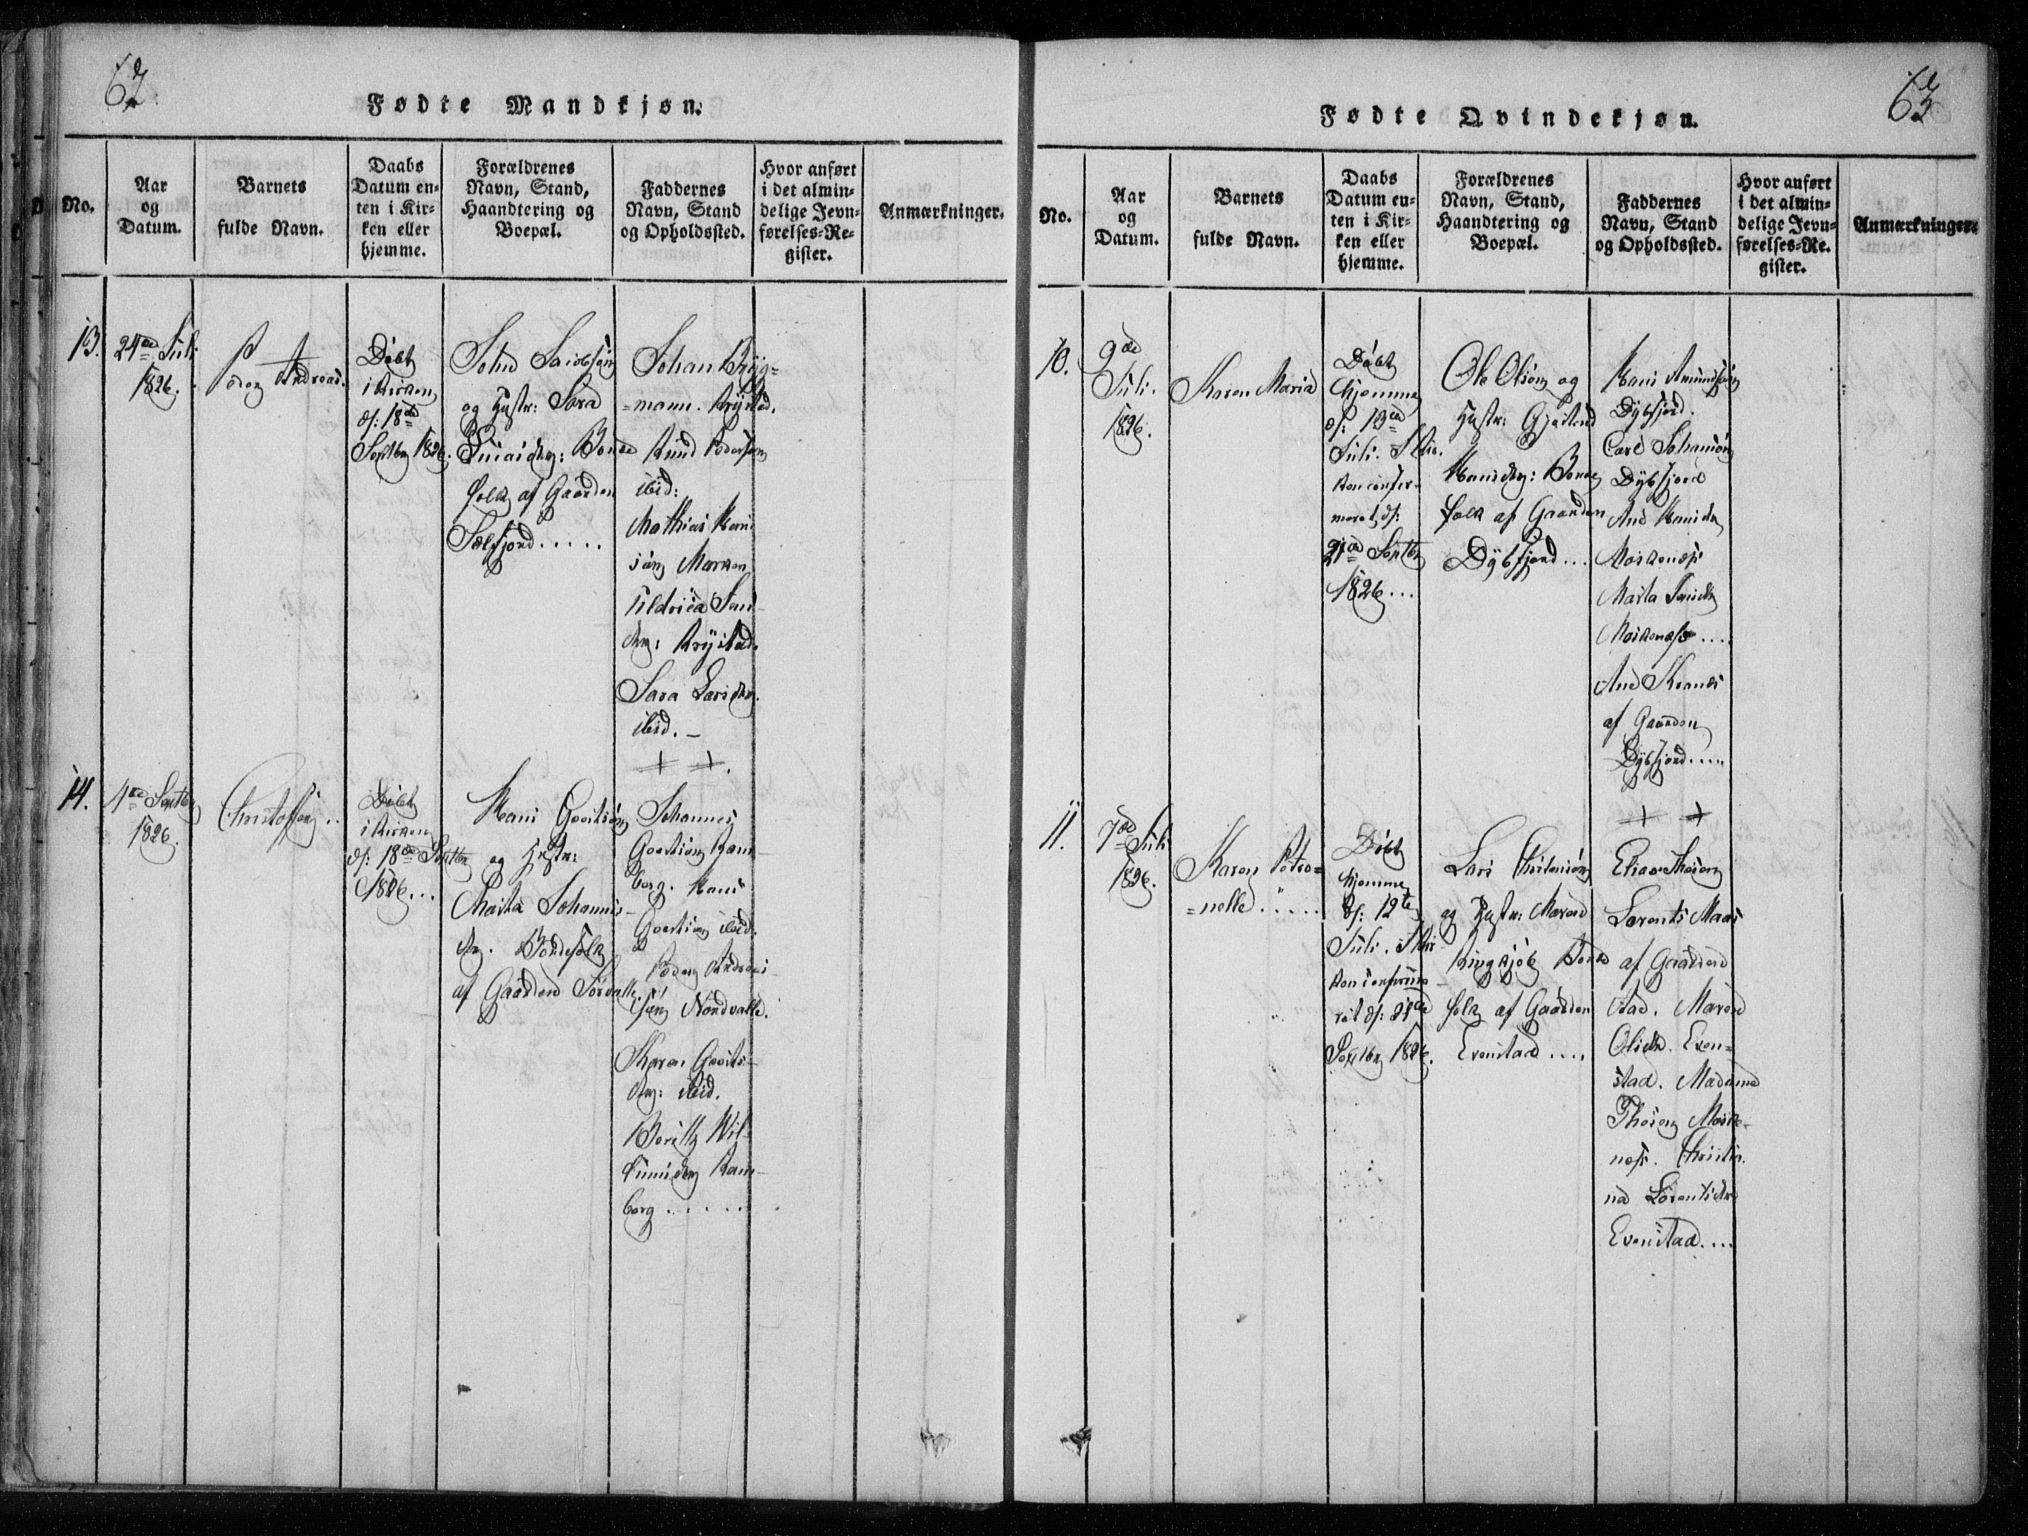 62
Fødte Mandkjøn.
No.
Aar
og
Datum.
Barnets
fulde Navn.
Daabs
Datum en-
ten i Kir-
ken eller
hjemme.
Forældrenes
Navn, Stand,
Haandtering og
Boepæl.
Faddernes
Navn, Stand
og Opholdssted.
Hvor anført
i det almin-
delige Jevn-
førelses-Re-
gister.
Anmærkninger.
13.
24de Juli
1826.
Peder Andreas.
Døbt
i Kirken
d: 18de
Septbr 1826.
John Jacobsøn
og Hustr: Sara
Bonde
folk af Gaarden
Selfjord.....
Johan Bryg-
=mann. Krystad.
Knud Pedersen
ibid:
Mathias Hans
søn Marken
dtr: Krystad.
Sara Larsdtr.
ibid. –
14.
4de Septbr
1826.
Christoffer..
Døbt
i Kirken
d: 18de Septbr
1826...
Hans Goertsøn
og Hustr:
Marta Johannis-
dtr. Bondefolk
af Gaarden Sørvalle.
Johannes
Goertsøn Ram-
berg. Hans
Goertsøn ibid.
Peder Andreas
søn Nordvalle.
Karen Goerts-
dtr: ibid.
Berith Wil-
Ram-
berg......
63
Fødte Qvindekjøn.
No.
Aar
og
Datum.
Barnets
fulde Navn.
Daabs
Datum en-
ten i Kir-
ken eller
hjemme.
Forældrenes
Navn, Stand,
Haandtering og
Boepæl.
Faddernes
Navn, Stand
og Opholdssted.
Hvor anført
i det almin-
delige Jevn-
førelses-Re-
gister.
Anmærkninger.
10.
9de
Juli.
1826.
Karen Maria
Døbt
hjemme
d: 13de
Juli. I Kir-
ken confir-
meret d:
21de Septbr
1826...
Ole Olsen og
Hustr: Gjertrud
Hansdtr: Bonde
folk af Gaarden
Dybfjord...
Hans Amundsøn
Dybfjord.
Carl Johansøn
Dybfjord
Ane Hansdtr
Moskenæs
Marta
Moskenæs....
Ane
af Gaarden
Dybfjord.....
11.
7de Juli
1826.
Karen Petro=
=nelle.....
Døbt
hjemme
d: 12te
Juli. I Kir-
ken confirme-
ret d: 21de
Septbr 1826.
Lars Christensøn
og Hustr: Maren
Ringkjøb Bonde
folk af Gaarden
Evenstad....
Elias Thesen
Lorents Maas
af Gaarden
stad. Maren
Olsdtr. Even=
stad. Madame
Thesen Moske-
næs. Christi-
na Lorentsdtr
Evenstad....